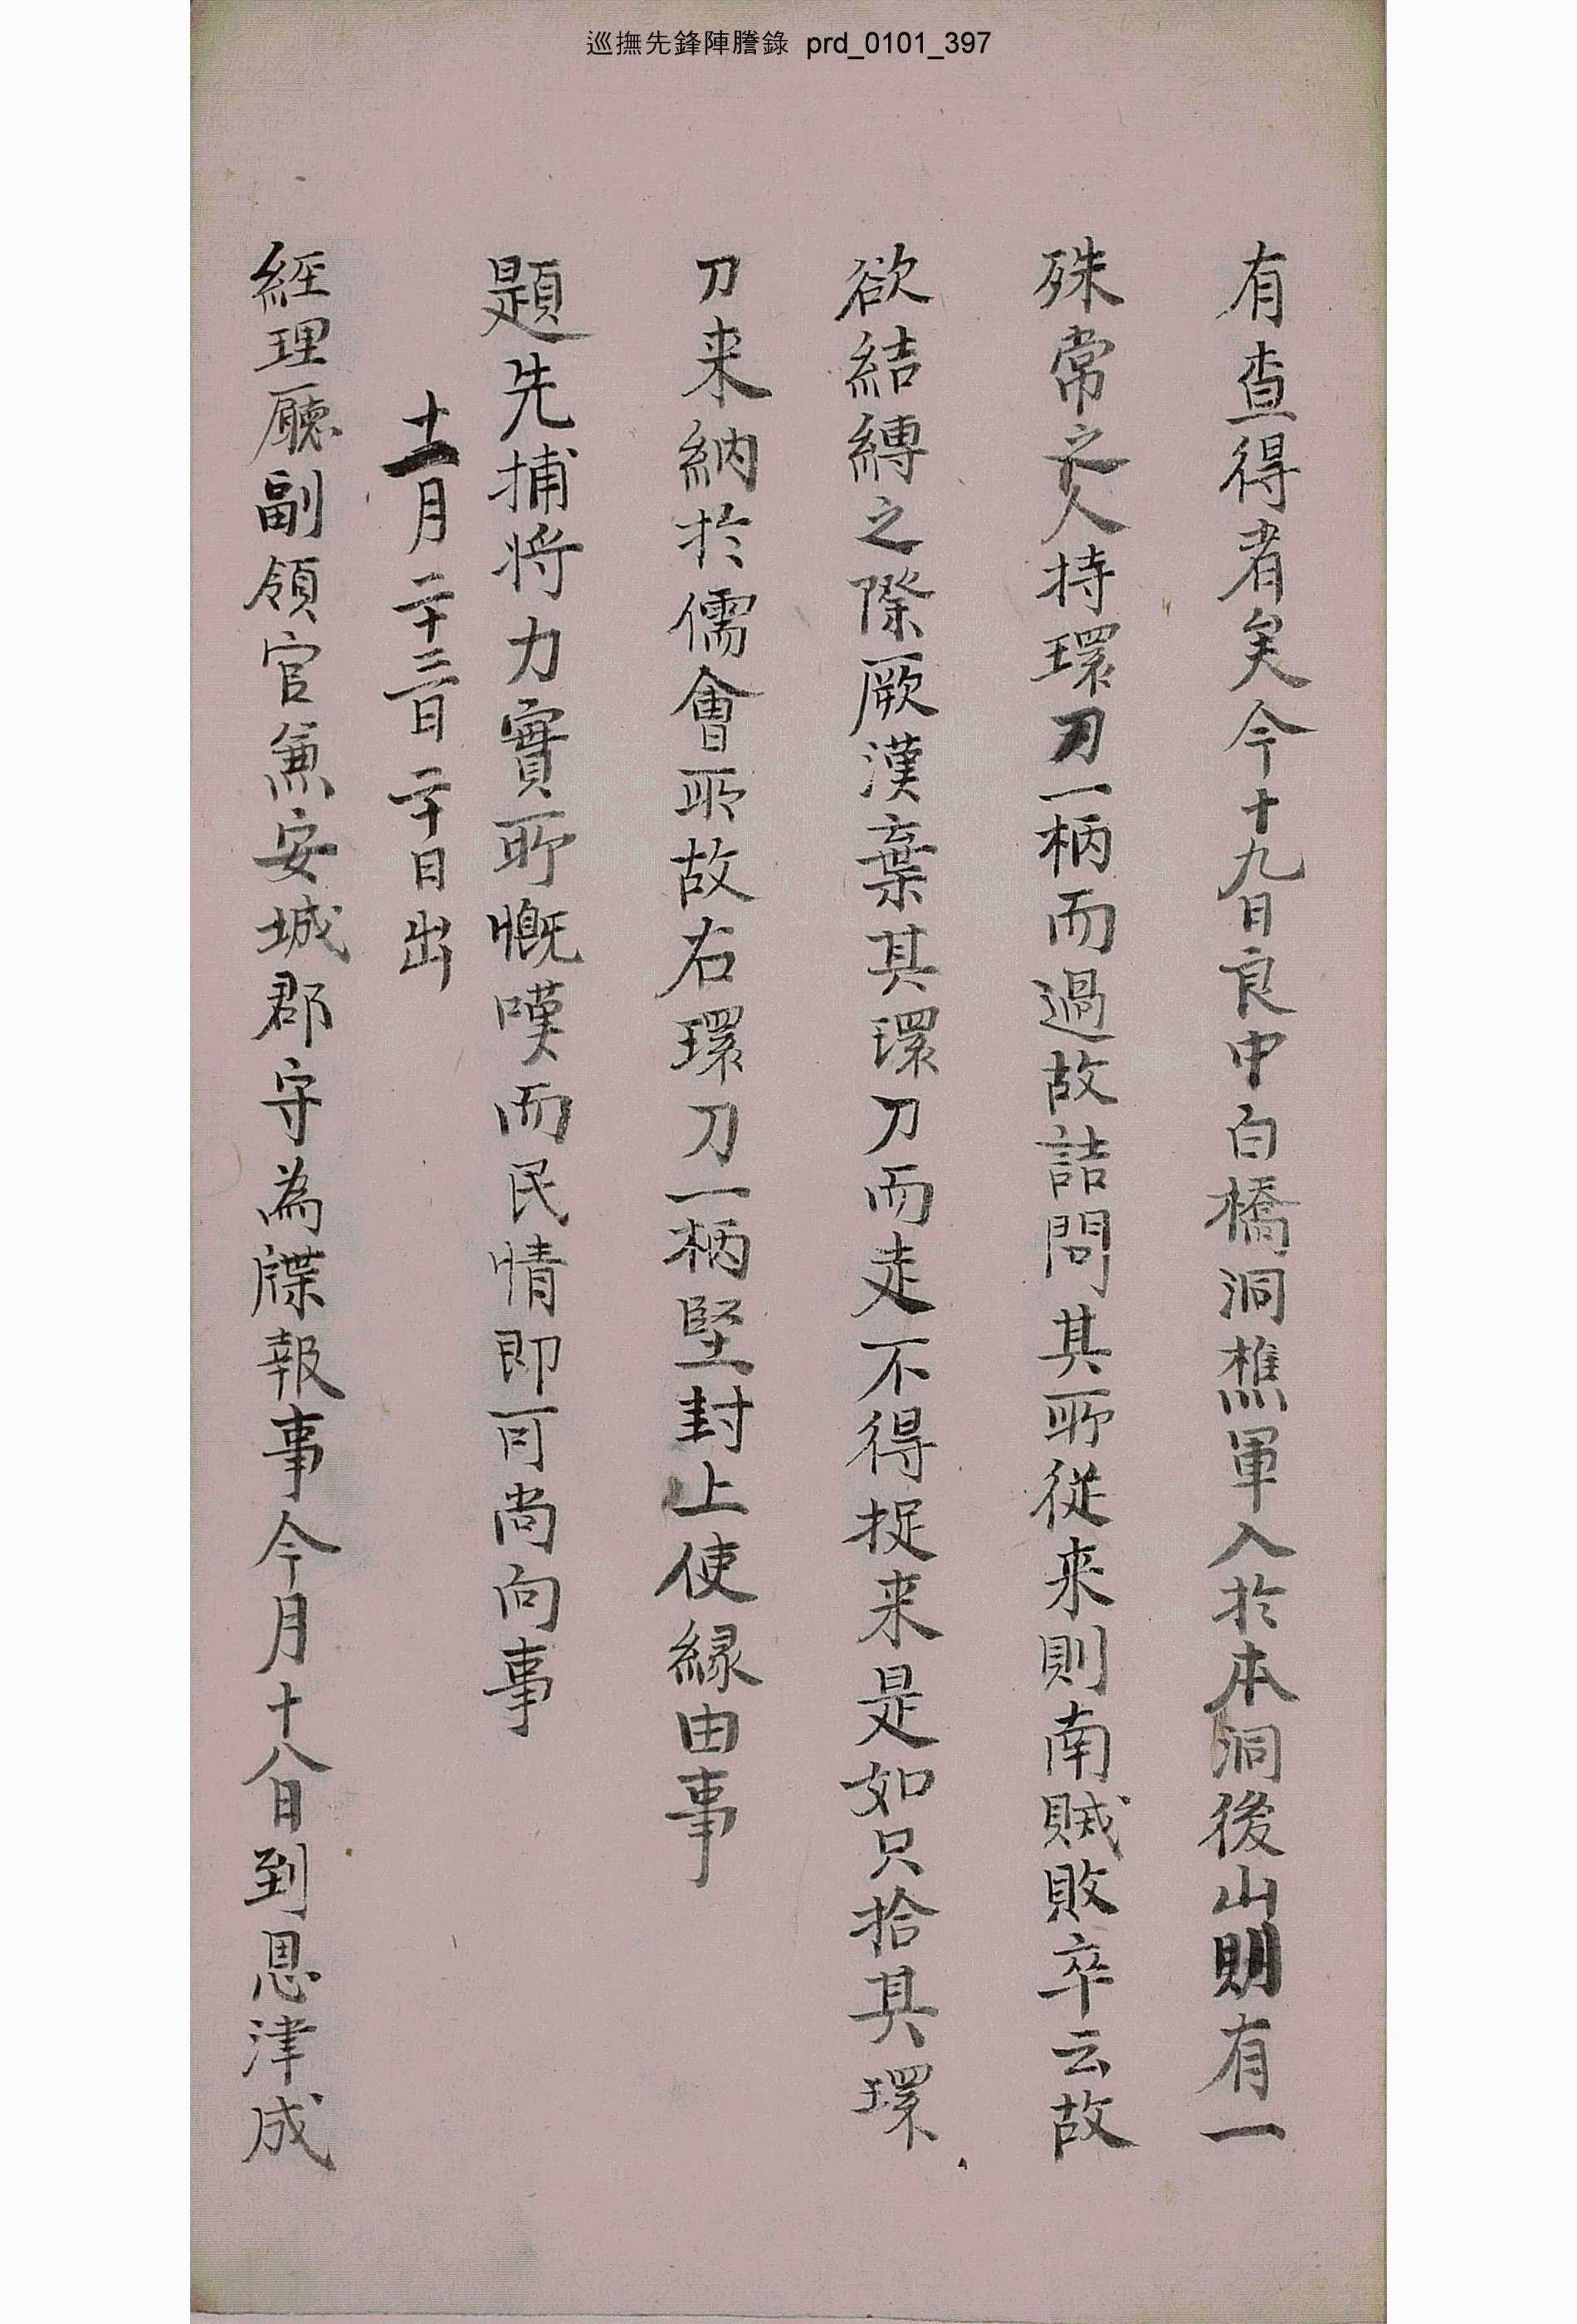 巡撫先鋒陣謄錄 prd_0101_397
有查得者矣今十九日良中白橋洞樵軍入於本洞後山明有一
殊常之人持環刀一柄而過故詰問其所從来則南賊敗卒云故
欲結縛之際厥漢棄其環刀而走不得捉来是如只拾其環
刀来納於儒會所故右環刀一柄堅封上使緣由事
題先捕將力實所慨嘆而民情即可尚向事
十二月二十三日二十日出
經理廳副領官兼安城郡守為牒報事今月十八日到恩津成